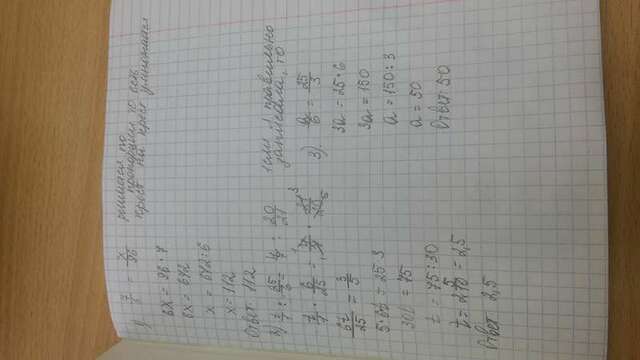 1) 7/6 = x/96 решаем по пропорции, то есть крест на крест умножаем
6x = 96 · 7
6x = 672
x = 672 : 6
x = 112
Ответ 112
2) : 25/6 = 4/7 : 20/21 если я правильно записала, то
· 6/25 = 4/7 · 21/20
6t/25 = 3/5
5 · 6t = 25 · 3
30t = 75
t = 75 : 30
= 2,5
Ответ 2,5
3) a/6 = 25/3
3a = 25 · 6
3a = 150
a = 150 : 3
a = 50
Ответ 50